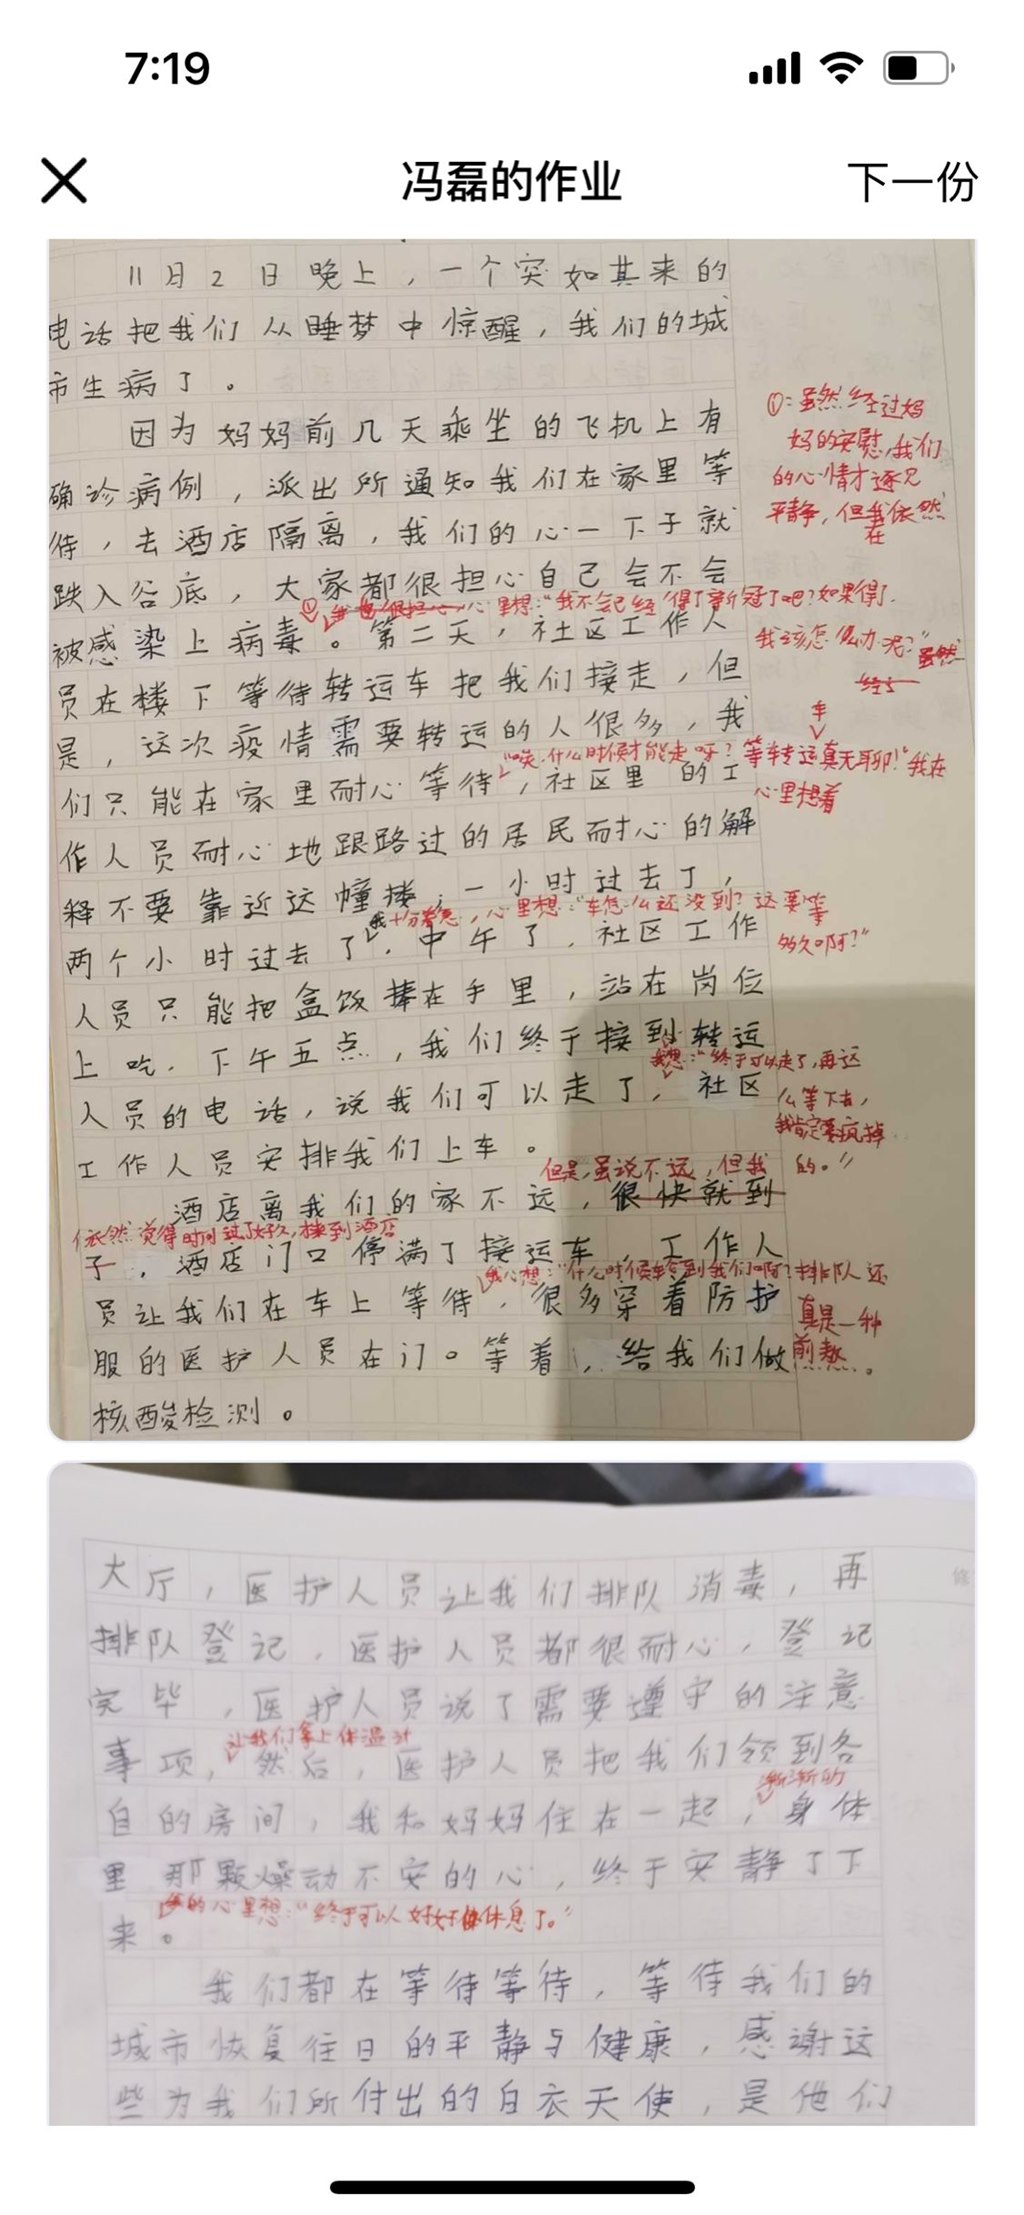 7:19
冯磊的作业
下一份
11月2日晚上，一个突如其来的
电话把我们从睡梦中惊醒，我们的城
市生病了。
因为妈妈前几天乘坐的飞机上有
确诊病例，派出所通知我们在家里等
待，去酒店隔离，我们的心一下子就
跌入谷底，大家都很担心自己会不会
①我也很担心心里想："我不会已经得了新冠了吧？如果得了，
我该怎么办呢？"虽然
经过
①：虽然经过妈
妈的安慰，我们
的心情才逐见
平静，但我依然
在
被感染上病毒。第二天，社区工作人
员在楼下等待转运车把我们接走，但
是，这次疫情需要转运的人很多，我
"唉，什么时候才能走呀？等转运车真无聊！"我在
心里想着
们只能在家里耐心等待，社区里的工
作人员耐心地跟路过的居民耐心的解
释不要靠近这幢楼，一小时过去了，
我十分着急，心里想："车怎么还没到？还要等
多久啊？"
两个小时过去了，中午了，社区工作
人员只能把盒饭捧在手里，站在岗位
上吃。下午五点，我们终于接到转运
我想："终于可以走了，再这
么等下去，
我肯定要疯掉
的。"
人员的电话，说我们可以走了，社区
工作人员安排我们上车。
但是，虽说不远，但我
酒店离我们的家不远，很快就到
依然觉得时间过了好久，来到酒店
子，酒店门口停满了接运车，工作人
我心想："什么时候轮到我们啊？排队还
真是一种
煎熬。
员让我们在车上等待，很多穿着防护
服的医护人员在门口等着，给我们做
核酸检测。
大厅，医护人员让我们排队消毒，再
排队登记，医护人员都很耐心，登记
完毕，医护人员说了需要遵守的注意
让我们拿上体温计
事项，然后，医护人员把我们领到各
渐渐的
自的房间，我和妈妈住在一起，身体
里那颗燥动不安的心，终于安静了下
我的心里想："终于可以好好休息了。"
来。
我们都在等待等待，等待我们的
城市恢复往日的平静与健康，感谢这
些为我们所付出的白衣天使，是他们